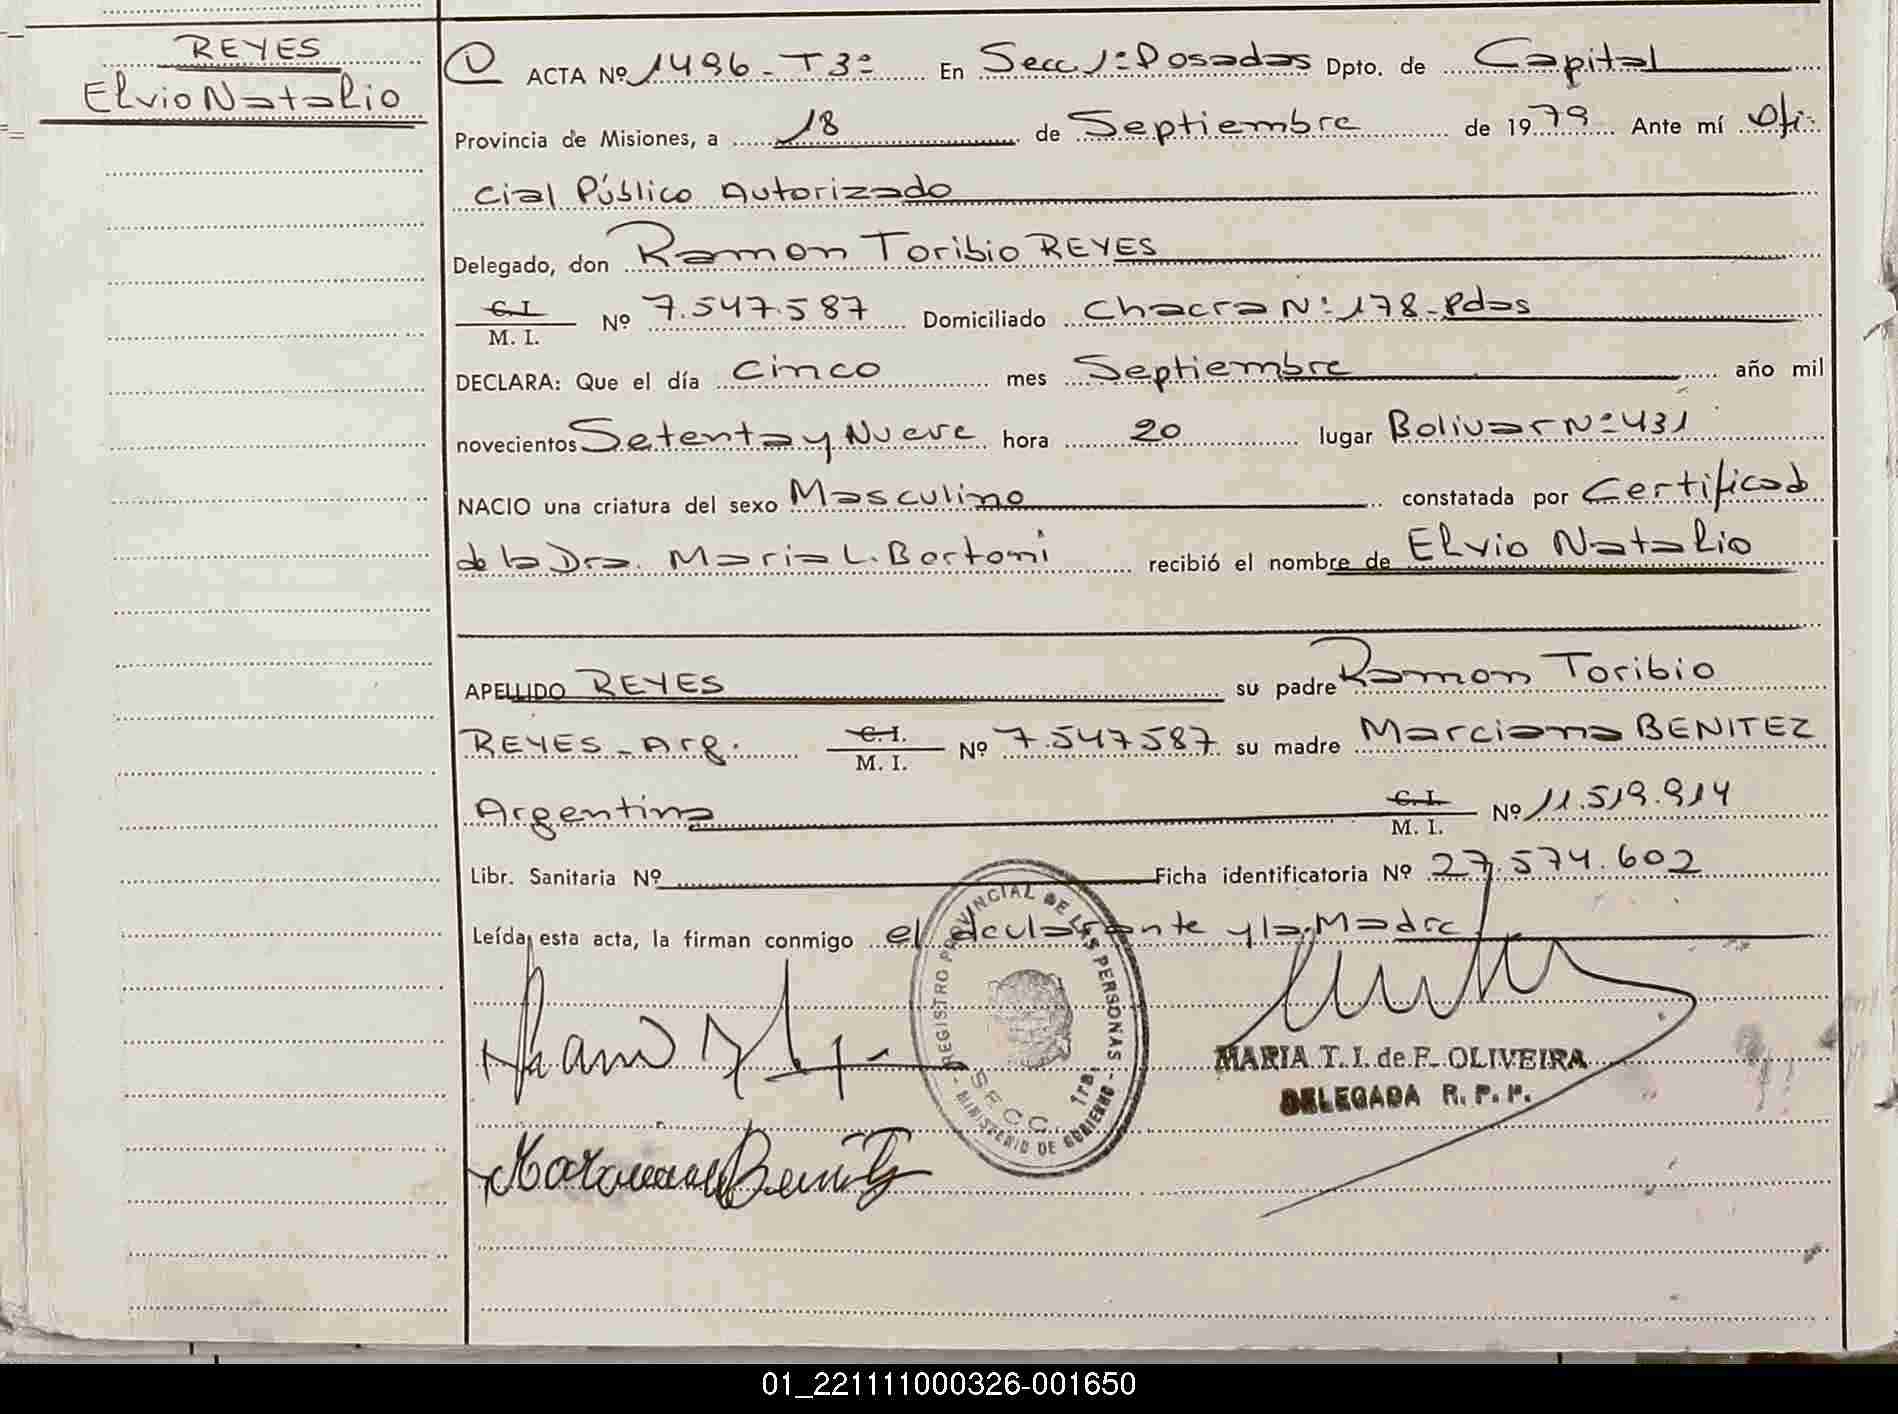 REYES
Elvio Natalio
ACTA Nº 1496 - T 3º En Secc. 1º Posadas Dpto. de Capital
Provincia de Misiones, a 18 de Septiembre de 1979 Ante mí Ofi-
cial Público Autorizado
Delegado, don Ramon Toribio REYES
C.I.
M. I. Nº 7.547.587 Domiciliado Chacra Nº 178 - Pdas
DECLARA: Que el día cinco mes Septiembre año mil
novecientos Setenta y Nueve hora 20 lugar Bolivar Nº 431
NACIO una criatura del sexo Masculino constatada por Certificado
de la Dra. Maria L. Bertoni recibió el nombre de Elvio Natalio
APELLIDO REYES su padre Ramon Toribio
REYES - Arg. C.I. M. I. Nº 7.547587 su madre Marciana BENITEZ
Argentina C.I. M. I. Nº 11.519.914
Libr. Sanitaria Nº Ficha identificatoria Nº 27.574.602
Leída esta acta, la firman conmigo el declarante y la Madre
REGISTRO PROVINCIAL DE LAS PERSONAS
SECC. 1ra.
- MINISTERIO DE GOBIERNO -
MARIA T. I. de F. OLIVEIRA
DELEGADA R. P. P.
Benitez
01_221111000326-001650